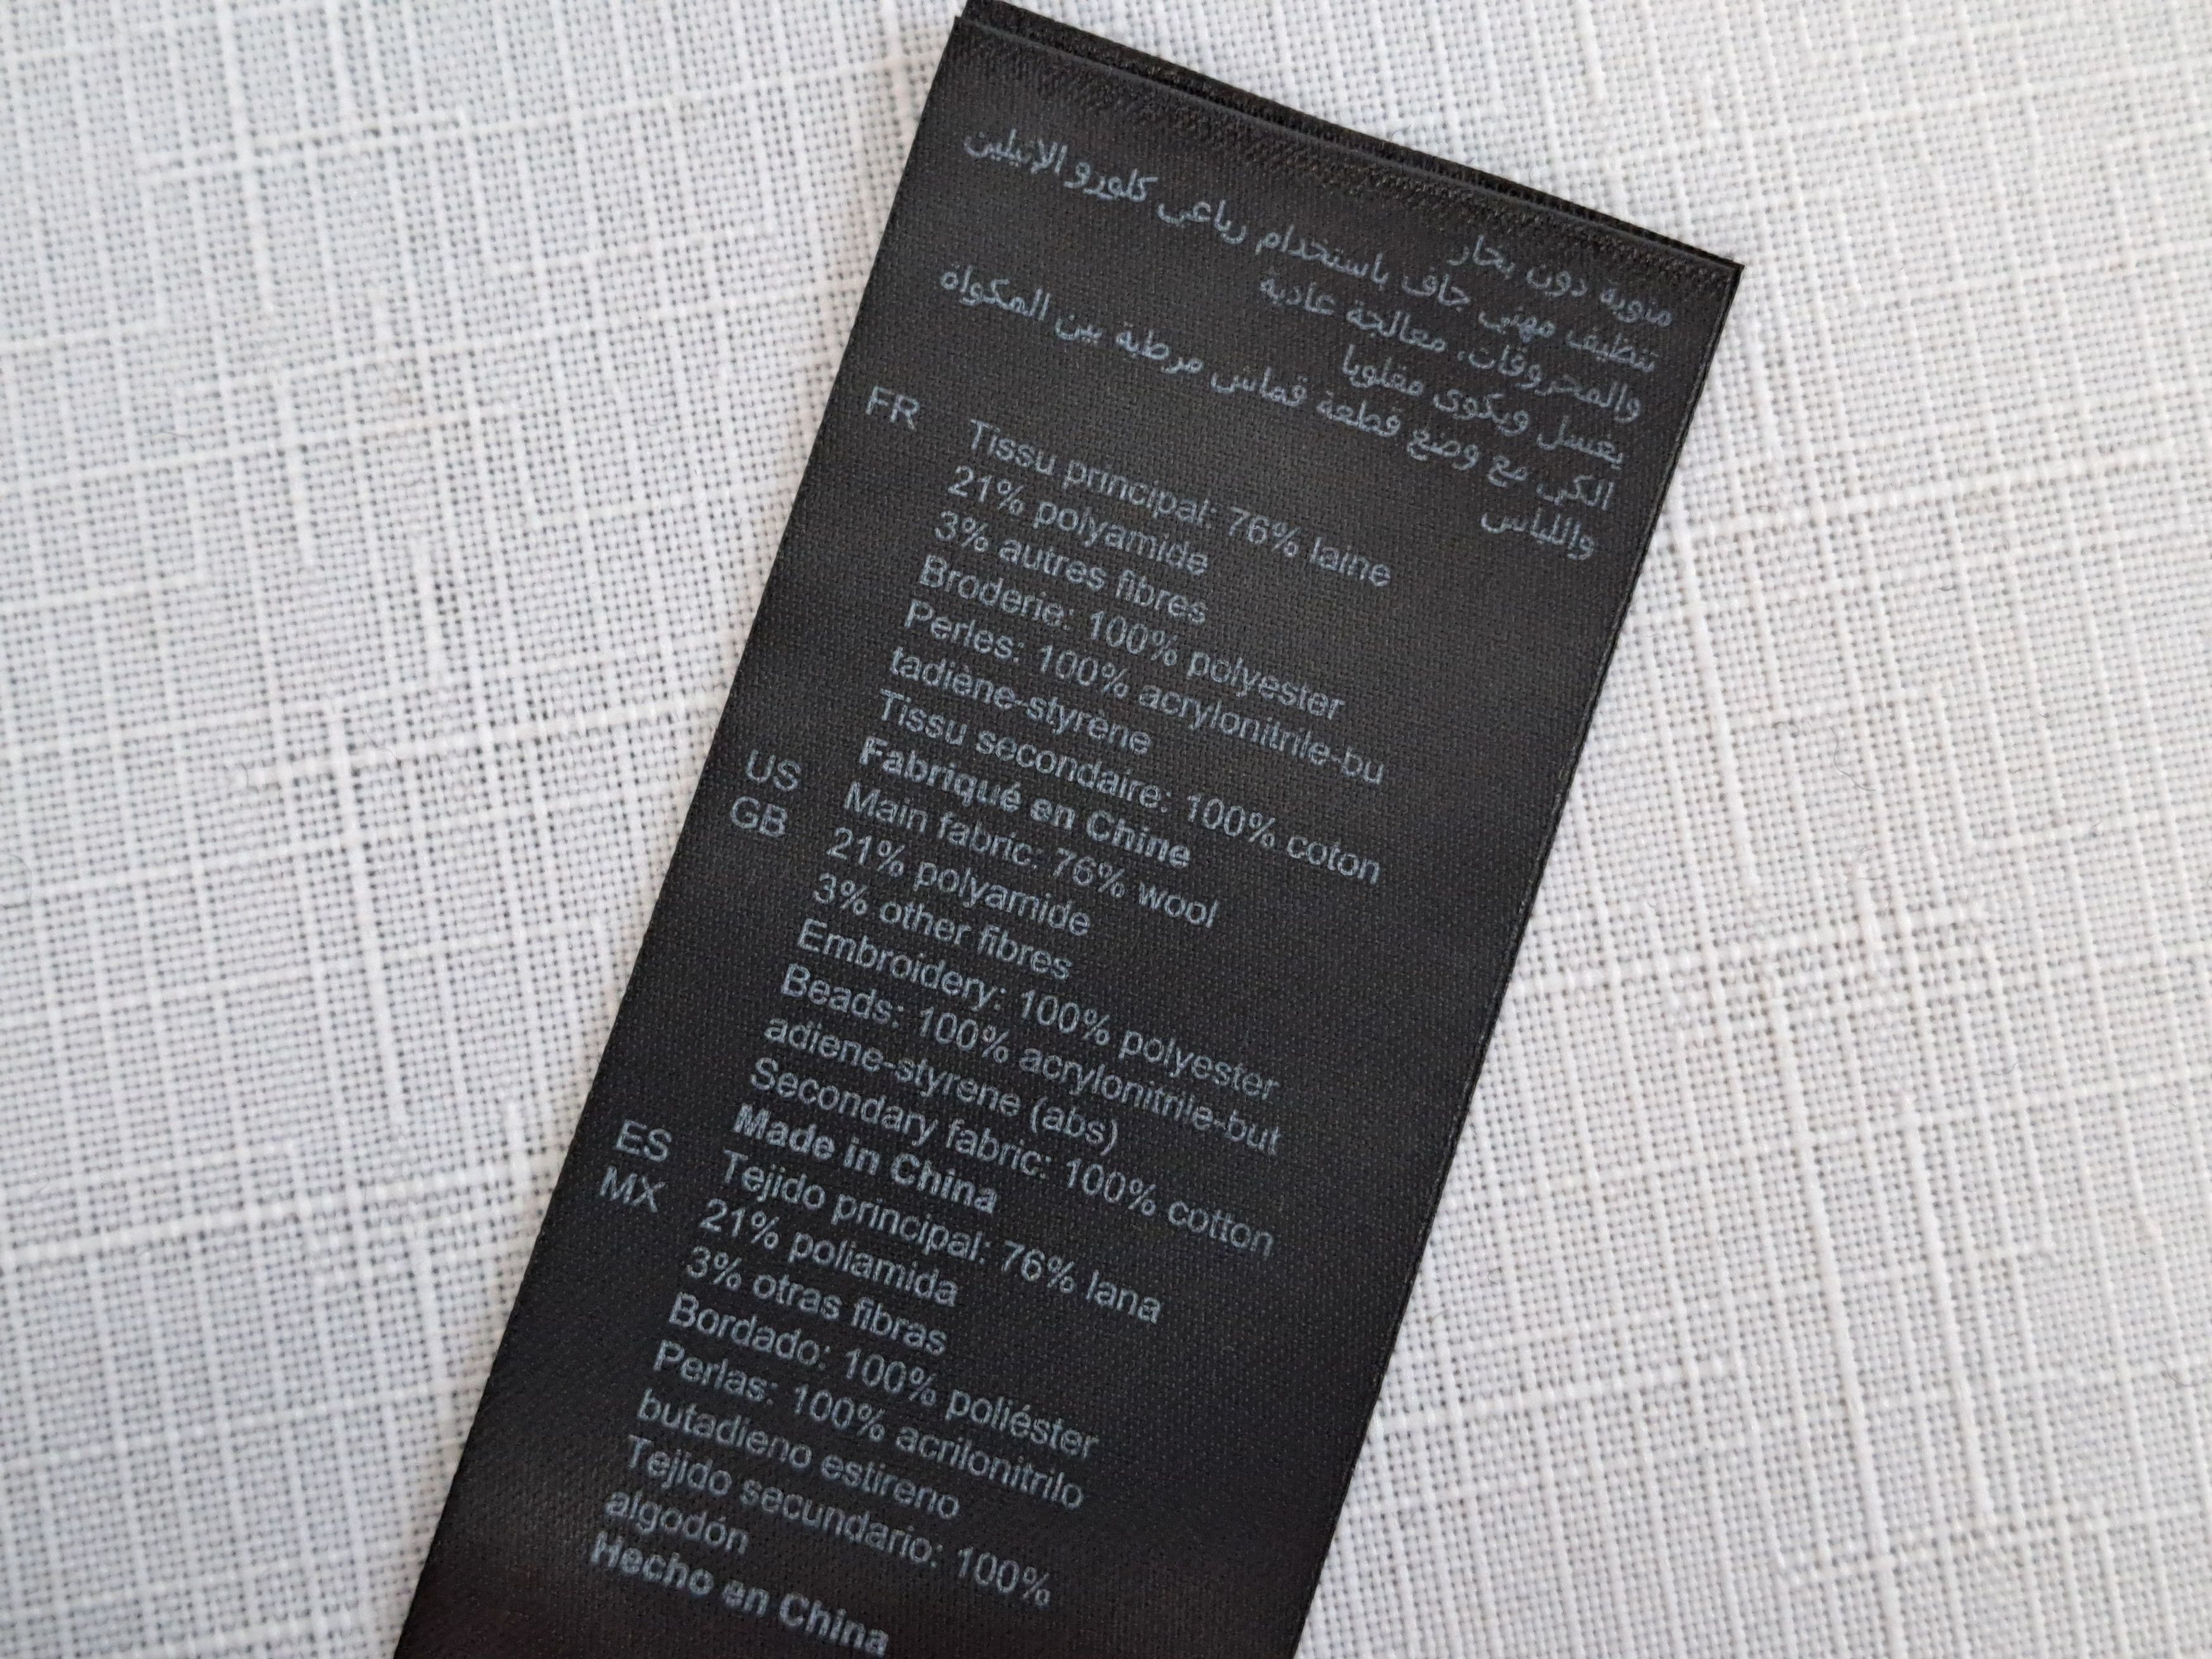 مئوية دون بخار
تنظيف مهني جاف باستخدام رباعي كلورو الإتيلين
والمحروقات، معالجة عادية
يغسل ويكوى مقلوبا
الكي مع وضع قطعة قماش مرطبة بين المكواة
واللباس
FR Tissu principal: 76% laine
21% polyamide
3% autres fibres
Broderie: 100% polyester
Perles: 100% acrylonitrile-bu
tadiène-styrène
Tissu secondaire: 100% coton
Fabriqué en Chine
US Main fabric: 76% wool
GB 21% polyamide
3% other fibres
Embroidery: 100% polyester
Beads: 100% acrylonitrile-but
adiene-styrene (abs)
Secondary fabric: 100% cotton
Made in China
ES Tejido principal: 76% lana
MX 21% poliamida
3% otras fibras
Bordado: 100% poliéster
Perlas: 100% acrilonitrilo
butadieno estireno
Tejido secundario: 100%
algodón
Hecho en China